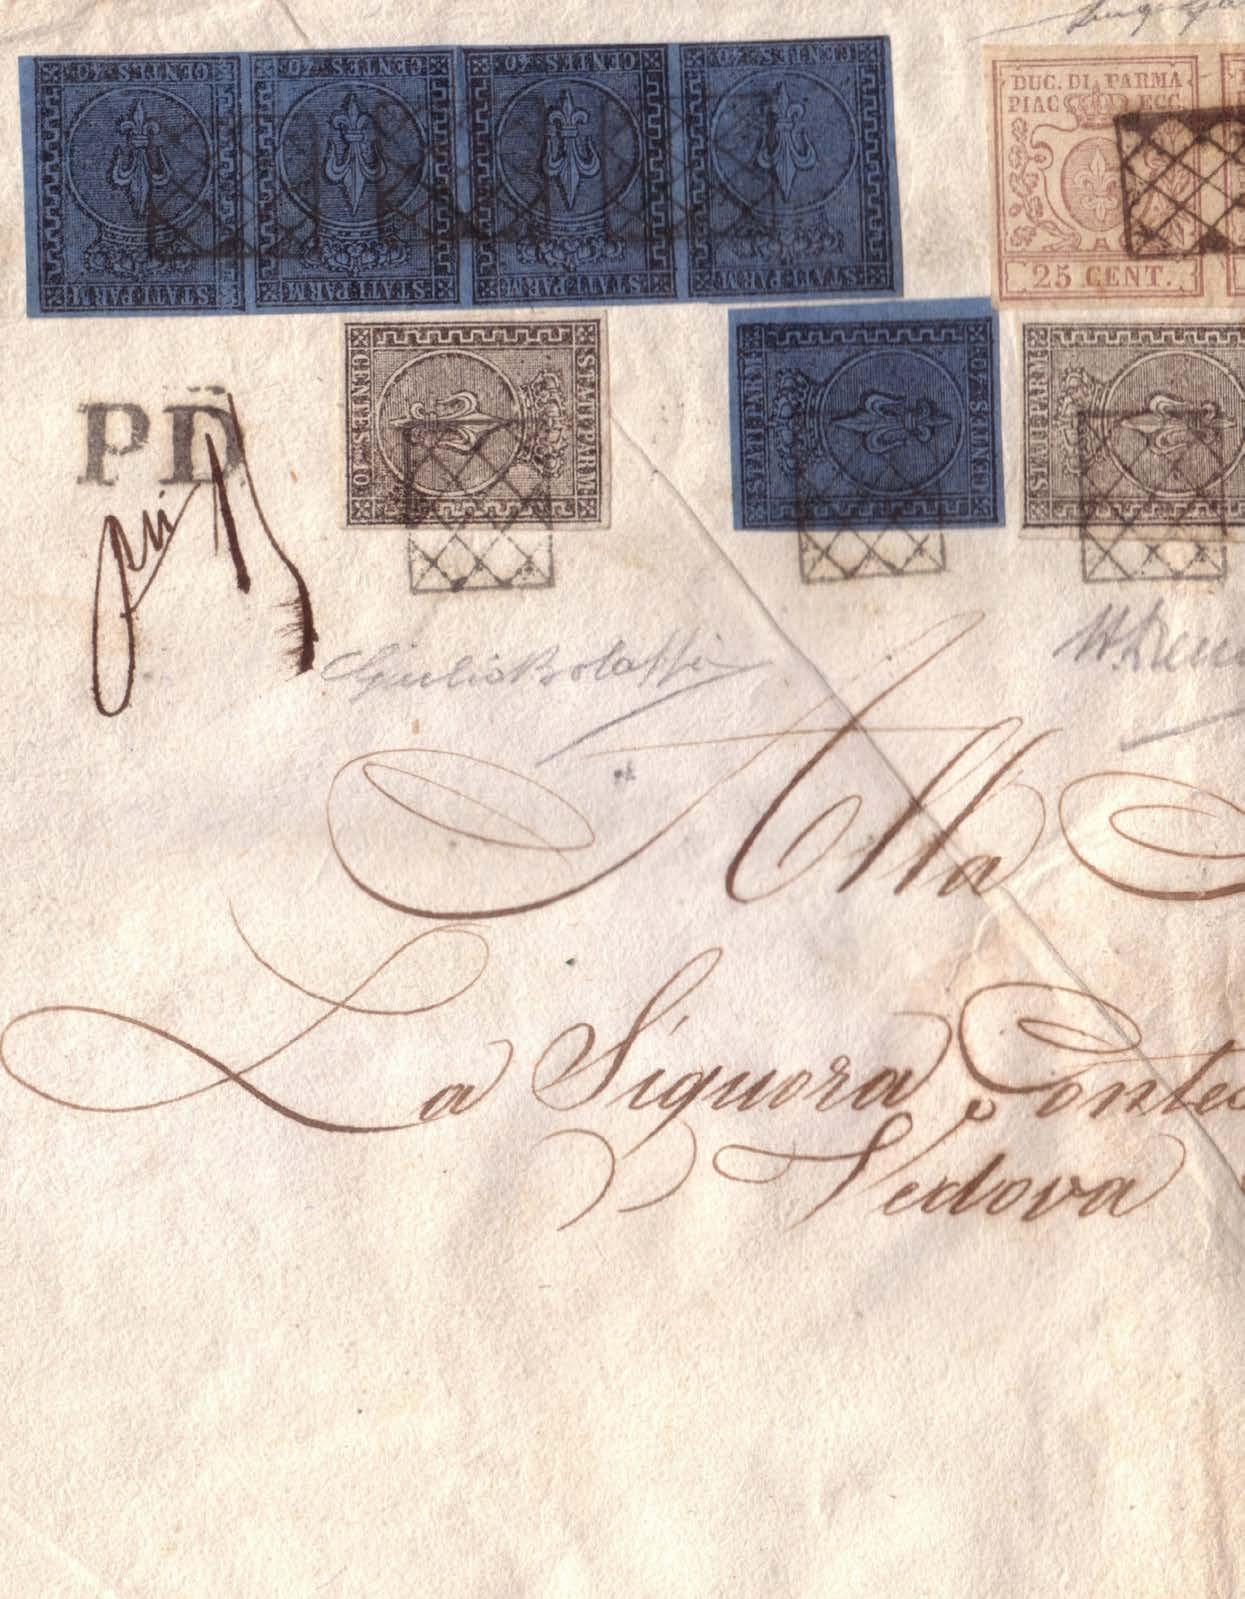 CENTES. 40 CENTES. 40 CENTES. 40 CENTES. 40
STATI PARM. STATI PARM. STATI PARM. STATI PARM.
DUC. DI PARMA
PIAC ECC.
25 CENT.
CENTES. 10 STATI PARM.
STATI PARM. CENTES. 40
STATI PARM.
PD
Giulio Bolaffi
Alla
La Signora Contes
Vedova